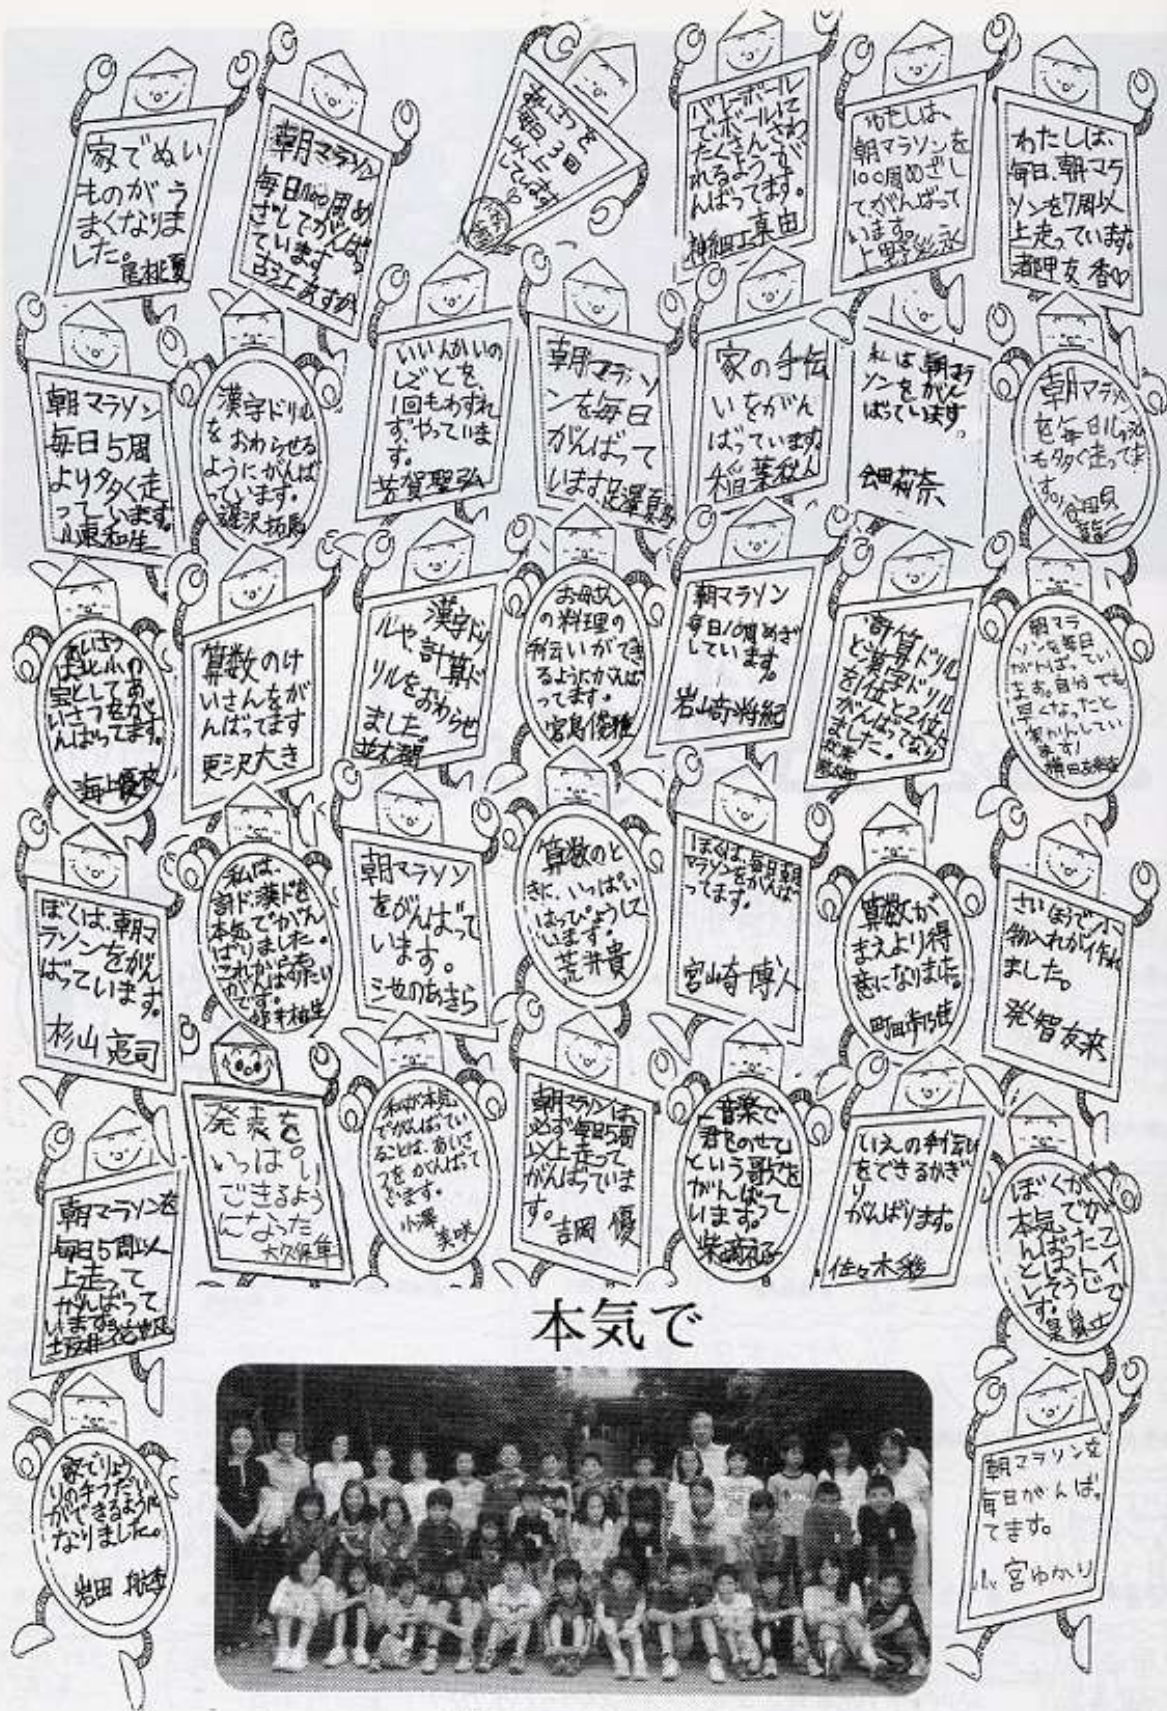 家でぬい
ものがう
まくなりま
した。
朝マラソン
毎日100周め
ざしてがんばっ
ています
あいさつを
毎日3回
以上
しています
バレーボール
でボールにさわ
たくさん
れるよう
んばってます。
真由
わたしは、
朝マラソンを
100周めざし
てがんばって
います。
上野彩永
わたしは、
毎日、朝マラ
ソンを7周以
上走っています。
都甲友香
朝マラソン
毎日5周
より多く走
っています。
漢字ドリル
をおわらせる
ようにがんば
っています。
いいんかいの
しごとを、
1回もわすれ
ず、やっていま
す。
芳賀聖弘
朝マラソ
ンを毎日
がんばって
います
家の手伝
いをがん
ばっています。
稲葉
私は朝マラ
ソンをがん
ばっています。
会田莉奈
朝マラソン
を毎日
も多く走ってま
す。
あいさつ
宝としてあ
いさつをが
んばってます。
海上優衣
算数のけ
いさんをが
んばってます
更沢大き
漢字ドリ
ルや、計算ド
リルをおわらせ
ました。
お母さん
の料理の
手伝いができ
るようにがんば
ってます。
宮島俊雅
朝マラソン
毎日10周めざ
しています。
岩崎将紀
計算ドリル
と漢字ドリル
を1位と2位に
がんばってなり
ました。
朝マラ
ソンを毎日
がんばってい
ます。自分でも
早くなったと
じっかんしてい
ます!
ぼくは、朝マ
ラソンをがん
ばっています。
杉山亮司
私は、
計ド、漢ドを
本気でがん
ばりました。
これからも
朝マラソン
をがんばって
います。
三池のあきら
算数のと
きに、いっぱい
はっぴょうして
います。
荒井貴
ぼくは、毎日朝
マラソンをがんば
ってます。
宮崎博人
算数が
まえより得
意になりました。
さいほうで小
物入れが作れ
ました。
発智友来
朝マラソンを
毎日5周以
上走って
がんばって
います。
発表を
いっぱい
できるよう
になった
大久保隼
私が本気
でがんばってい
ることは、あいさ
つをがんばって
います。
小澤
美咲
朝マラソンは、
必ず毎日5周
以上走って
がんばっていま
す。
吉岡 優
音楽で
「君をのせて」
という歌を
がんばって
います。
いえの手伝い
をできるかぎ
り
がんばります。
佐々木彩
ぼくが
本気でが
んばったこ
とは、トイ
レそうじで
す。
本気で
家でりょう
りの手つだい
ができるように
なりました。
岩田
朝マラソンを
毎日がんばっ
てます。
小宮ゆかり